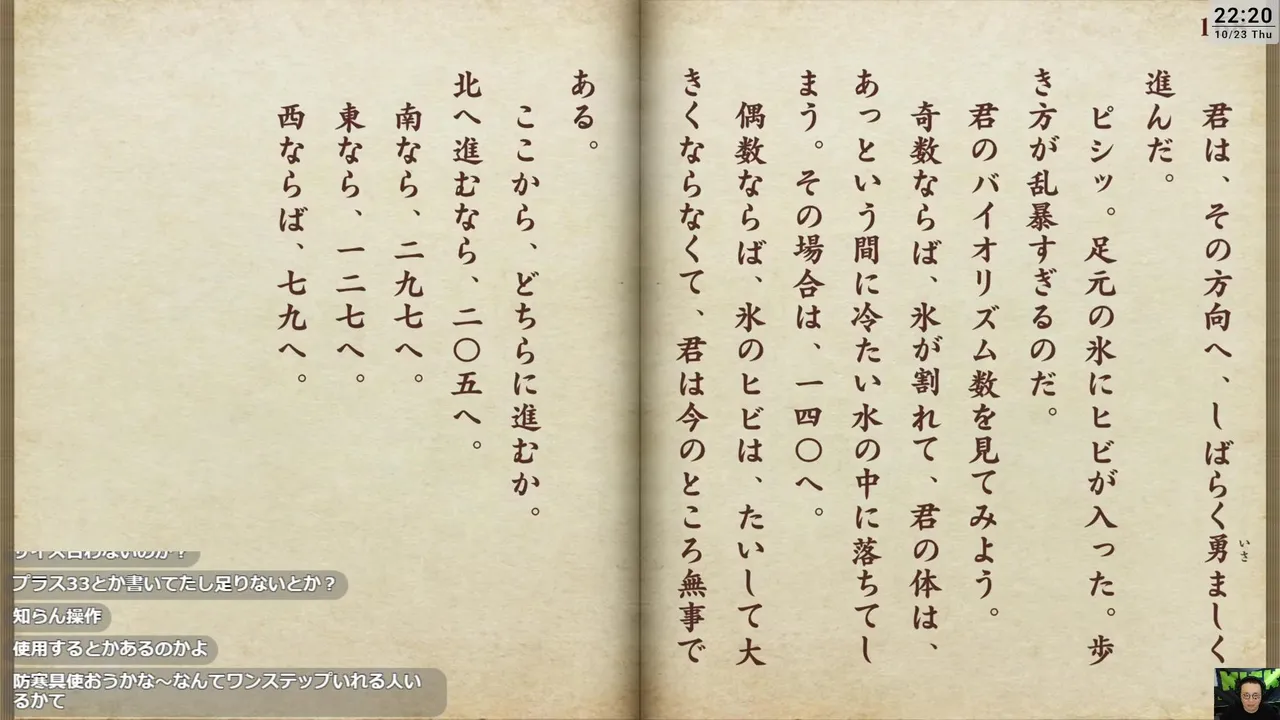 22:20
10/23 Thu
1
君は、その方向へ、しばらく勇ましく
いさ
進んだ。
ピシッ。足元の氷にヒビが入った。歩
き方が乱暴すぎるのだ。
君のバイオリズム数を見てみよう。
奇数ならば、氷が割れて、君の体は、
あっという間に冷たい水の中に落ちてし
まう。その場合は、一四〇へ。
偶数ならば、氷のヒビは、たいして大
きくならなくて、君は今のところ無事で
ある。
ここから、どちらに進むか。
北へ進むなら、二〇五へ。
南なら、二九七へ。
東なら、一二七へ。
西ならば、七九へ。
サイズ合わないのか？
プラス33とか書いてたし足りないとか？
知らん操作
使用するとかあるのかよ
防寒具使おうかな～なんてワンステップいれる人い
るかて